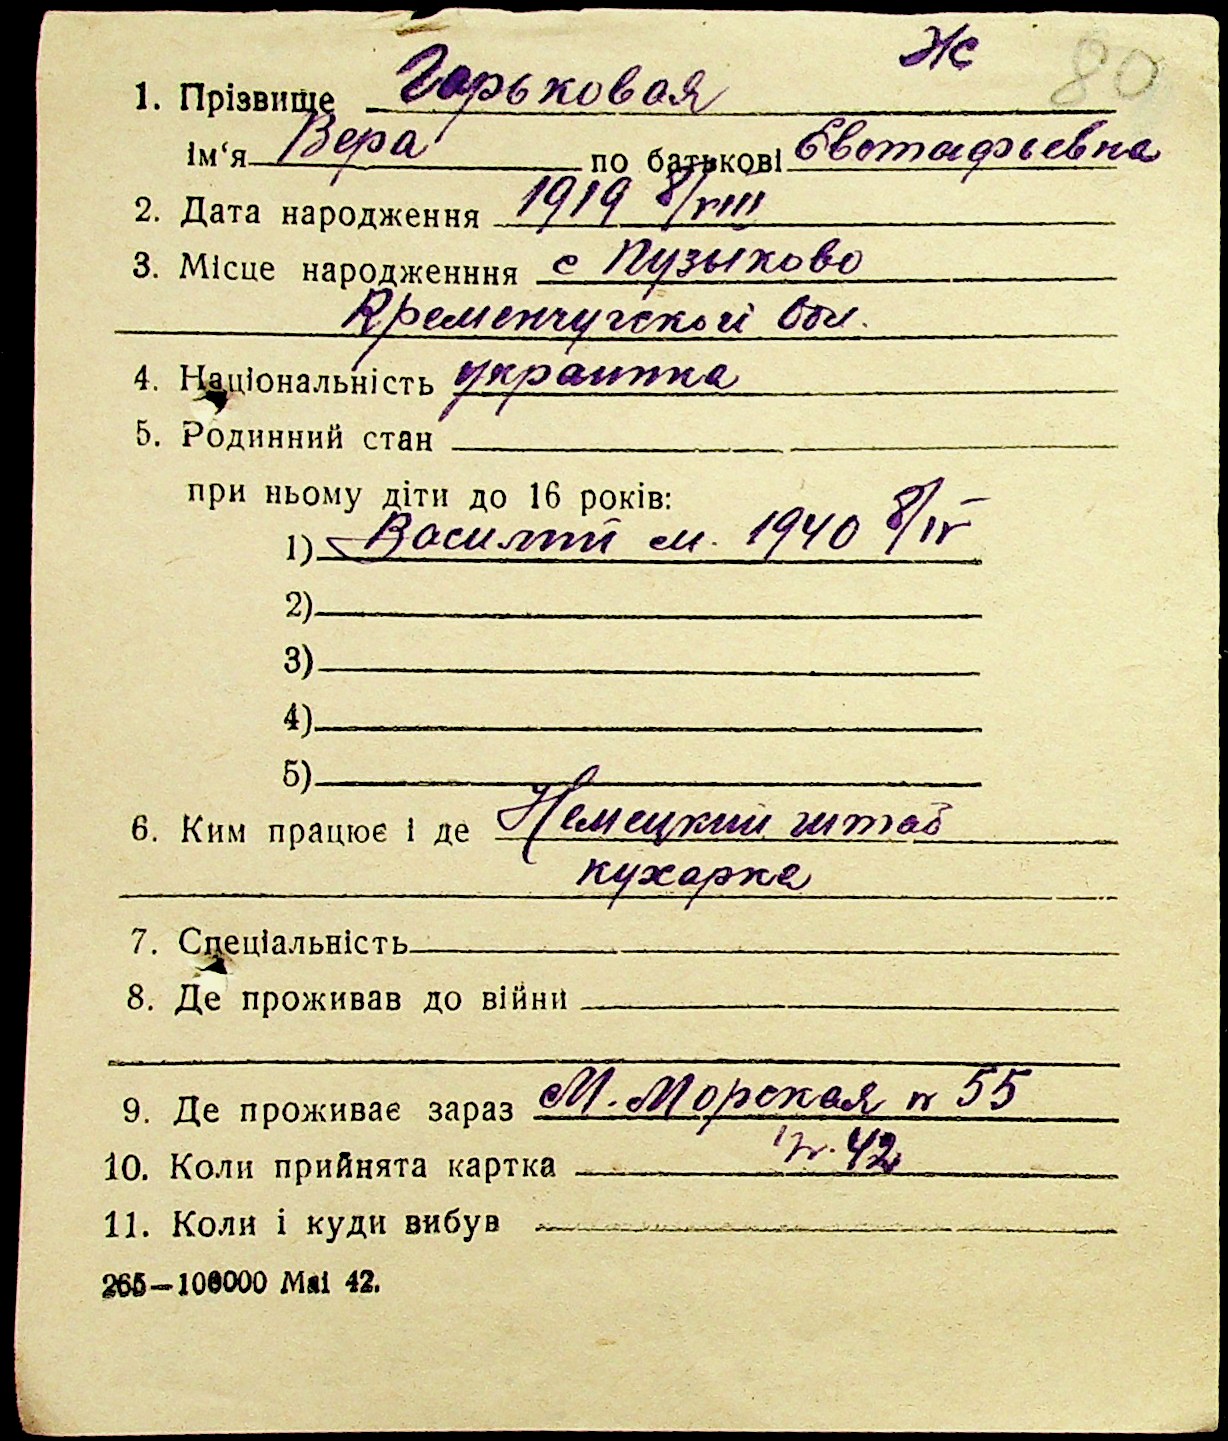 Ж 80
1. Прізвище Горьковая
ім‘я Вера по батькові Евстафьевна
2. Дата народження 1919 8/VIII
3. Місце народженння с Пузыково
Кременчугской Обл.
4. Національність украинка
5. Родинний стан
при ньому діти до 16 років:
1) Василий м. 1940 8/IV
2)
3)
4)
5)
6. Ким працює і де Немецкий штаб
кухарка
7. Спеціальність
8. Де проживав до війни
9. Де проживає зараз М. Морская № 55
10. Коли прийнята картка 42
11. Коли і куди вибув
265—100000 Маі 42.